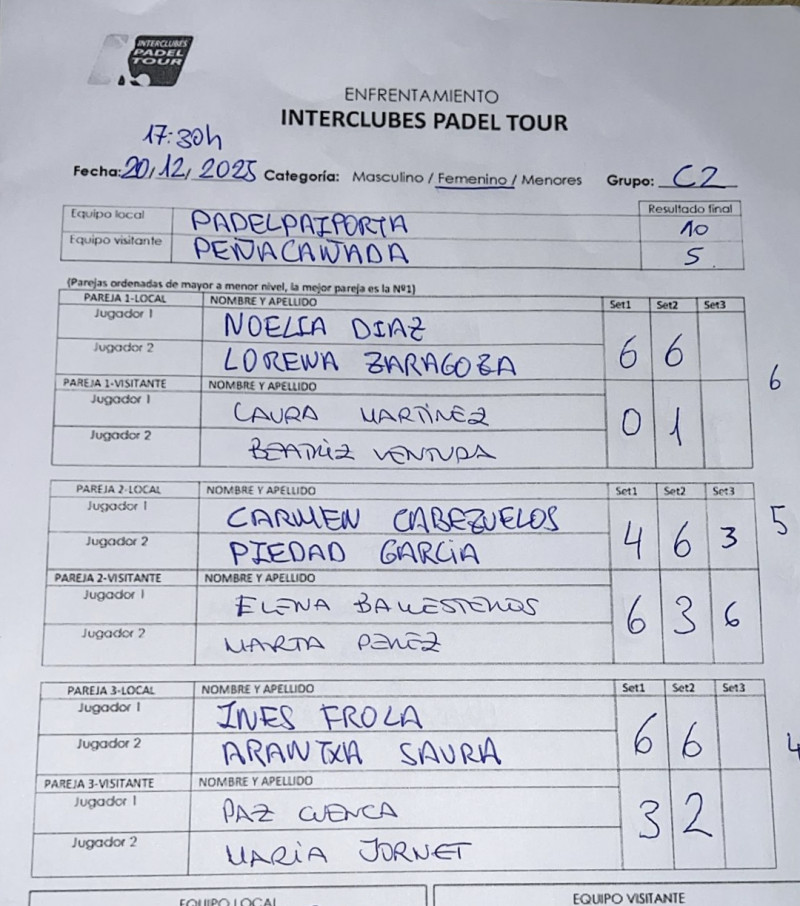 INTERCLUBES
PADEL
TOUR
ENFRENTAMIENTO
INTERCLUBES PADEL TOUR
17:30h
Fecha: 20, 12, 2025 Categoría: Masculino / Femenino / Menores Grupo: C2
Equipo local PADELPAIPORTA Resultado final 10
Equipo visitante PEÑACAÑADA 5
(Parejas ordenadas de mayor a menor nivel, la mejor pareja es la Nº1)
PAREJA 1-LOCAL NOMBRE Y APELLIDO Set1 Set2 Set3
Jugador 1 NOELIA DIAZ
Jugador 2 LORENA ZARAGOZA 6 6
PAREJA 1-VISITANTE NOMBRE Y APELLIDO 6
Jugador 1 LAURA MARTÍNEZ 0 1
Jugador 2 BEATRIZ VENTURA
PAREJA 2-LOCAL NOMBRE Y APELLIDO Set1 Set2 Set3
Jugador 1 CARMEN CABEZUELOS 5
Jugador 2 PIEDAD GARCIA 4 6 3
PAREJA 2-VISITANTE NOMBRE Y APELLIDO
Jugador 1 ELENA BALLESTEROS 6 3 6
Jugador 2 MARTA PEREZ
PAREJA 3-LOCAL NOMBRE Y APELLIDO Set1 Set2 Set3
Jugador 1 INES FROLA
Jugador 2 ARANTXA SAURA 6 6 4
PAREJA 3-VISITANTE NOMBRE Y APELLIDO
Jugador 1 PAZ CUENCA 3 2
Jugador 2 MARIA JORNET
EQUIPO LOCAL EQUIPO VISITANTE